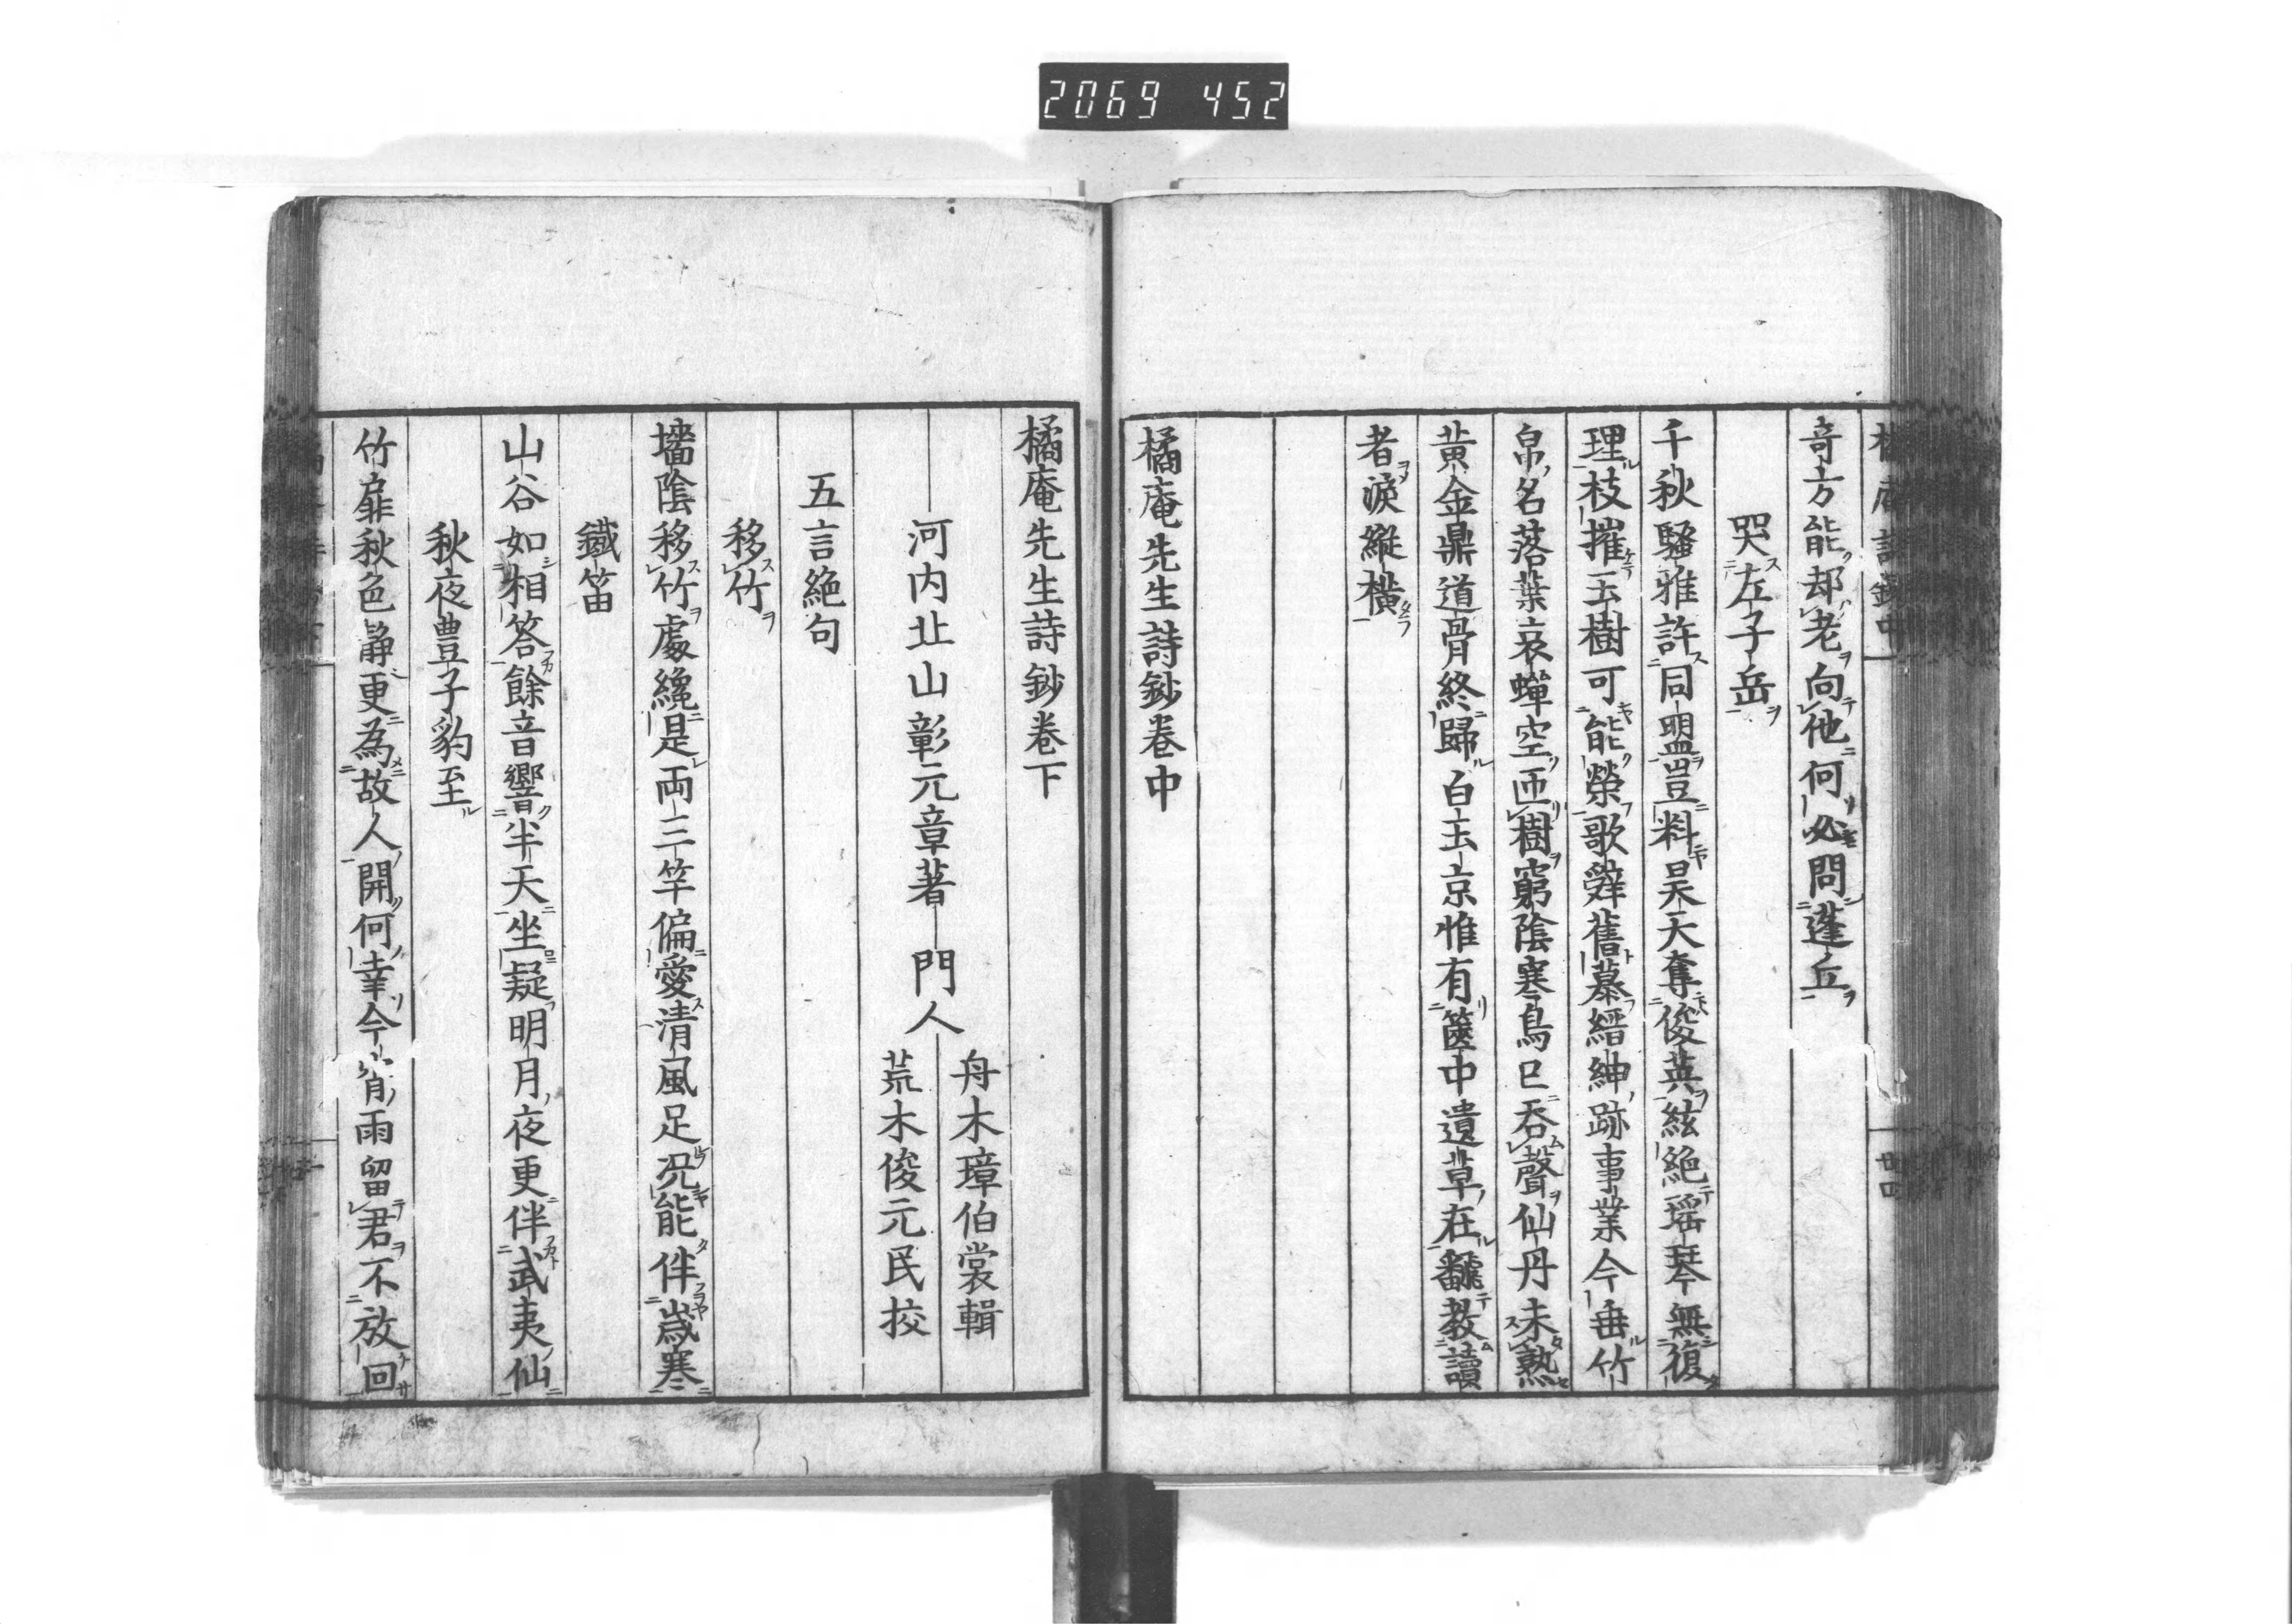 2069 452
奇方能却老向他何必問蓬丘
哭左子岳
千秋騷雅許同盟豈料昊天奪俊英絃絶瑶琴無復
理枝摧玉樹可能榮歌辤舊慕縉紳跡事業今垂竹
帛名落葉哀蟬空匝樹窮陰寒鳥已吞聲仙丹未熟
黄金鼎道骨終歸白玉京惟有篋中遺草在飜教讀
者淚縱横
橘庵先生詩鈔卷中
橘庵先生詩鈔卷下
河内北山彰元章著 門人
舟木璋伯裳輯
荒木俊元民挍
五言絶句
移竹
墻陰移竹處纔是兩三竿偏愛清風足况能伴歳寒
鐵笛
山谷如相答餘音響半天坐疑明月夜更伴武夷仙
秋夜豊子豹至
竹扉秋色靜更為故人開何幸今宵雨留君不放回